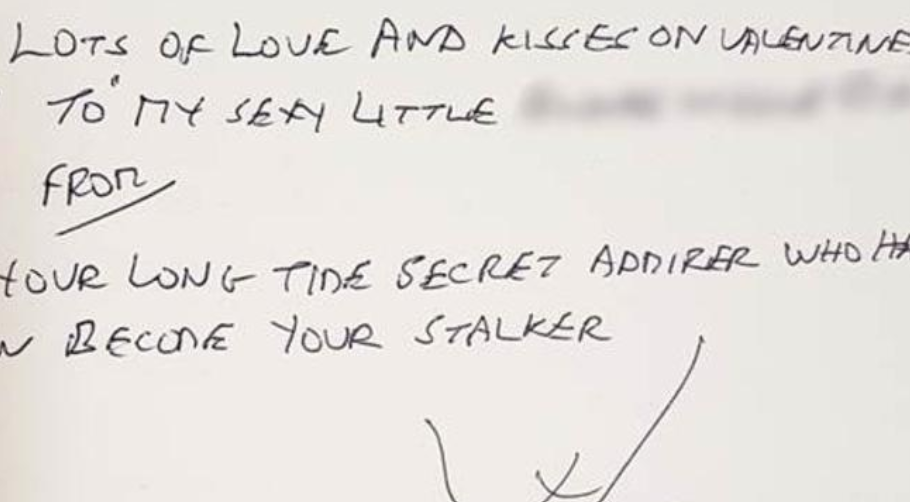 LOTS OF LOVE AND KISSES ON VALENTINE
TO MY SEXY LITTLE
FROM
YOUR LONG TIME SECRET ADMIRER WHO HA
N BECOME YOUR STALKER
X